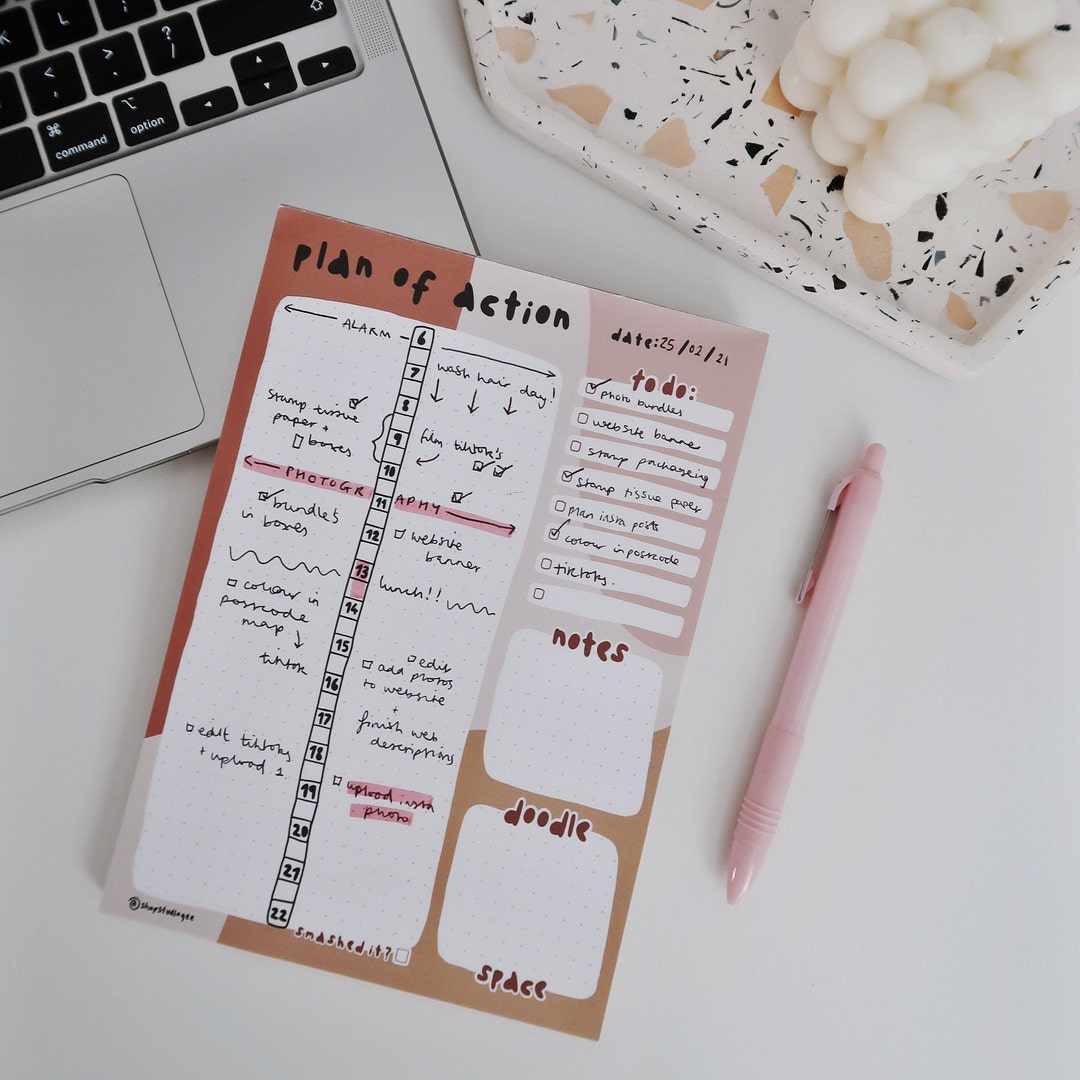 K
L
<
,
>
.
?
/
command
option
plan of action
date: 25/02/21
ALARM
6
7
wash hair day!
8
stamp tissue
paper +
boxes
9
film tiktok's
10
PHOTOGR
11
APHY
bundles
in boxes
12
website
banner
13
lunch!!
14
colour in
postcode
map
tiktok
15
edit
add photos
to website
+
finish web
descriptions
16
17
edit tiktoks
+ upload 1
18
19
upload insta
photo
20
21
22
@shopstudiogee
smashed it?
to do:
photo bundles
website banner
stamp packageing
stamp tissue paper
plan insta posts
colour in postcode
tiktoks.
notes
doodle
space